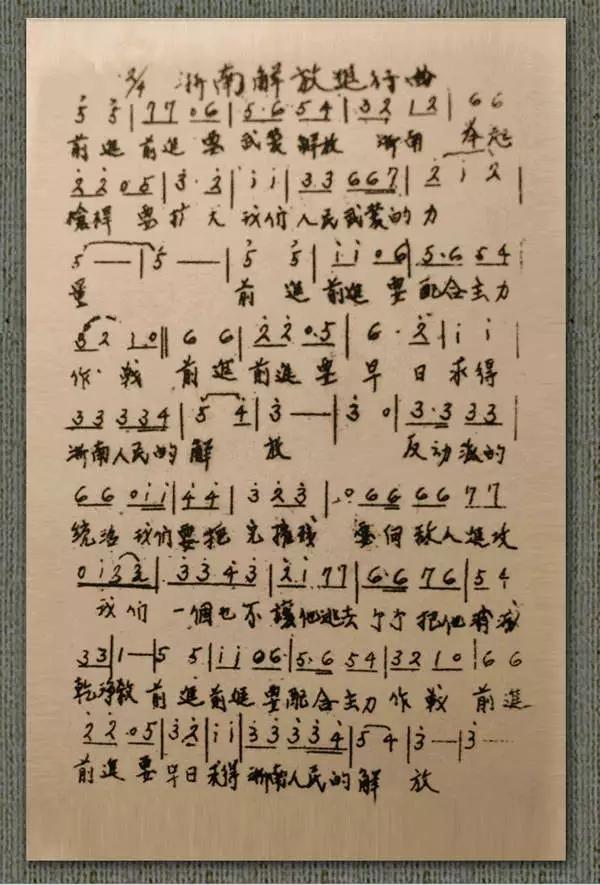 2/4 浙南解放進行曲
5 5 | 7 7 0 6 | 5·6 5 4 | 3 2 1 2 | 6 6
前進 前進 要 武裝 解放 浙南 举起
2 2 0 5 | 3·2 | i i | 3 3 6 6 7 | 2 i 2
槍桿 要 扩 大 我们 人民 武裝 的 力
5 — | 5 — | 5 5 | i i 0 6 | 5·6 5 4
量 前 進 前進 要 配合 主力
3 2 1 0 || 6 6 | 2 2 0 5 | 6·2 | i i
作 戰 前進 前進 要 早 日 求得
3 3 3 3 4 | 5 4 | 3 — | 3 0 | 3·3 3 3
浙南人民的 解 放 反动派的
6 6 0 i i | 4 4 | 3 2 3 | 0 6 6 6 6 7 7
统治 我们 要把 它 摧殘 要向 敌人 進攻
0 i 3 2 | 3 3 4 3 | 2 i 7 7 | 6·6 7 6 | 5 4
我们 一個也不 讓他逃去 个个 把他 消滅
3 3 | 1 — | 5 5 | i i 0 6 | 5·6 5 4 | 3 2 1 0 | 6 6
乾净 前進 前進 要配合 主力 作 戰 前進
2 2 0 5 | 3 2 | i i | 3 3 3 3 4 | 5 4 | 3 — | 3 —
前進 要 早日 求得 浙南人民的 解 放